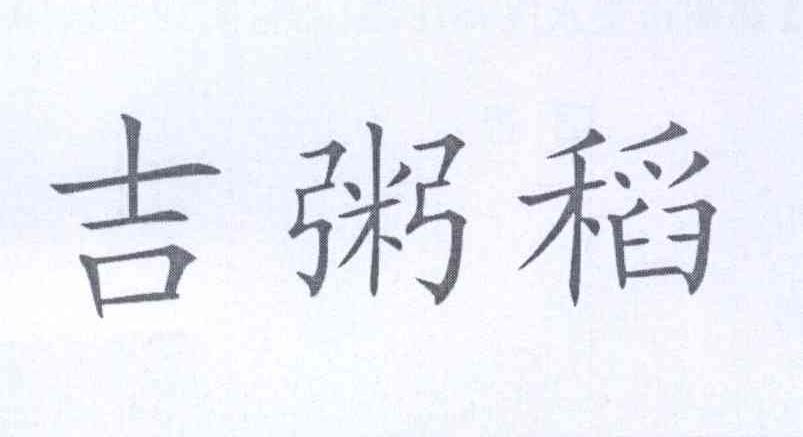 吉粥稻